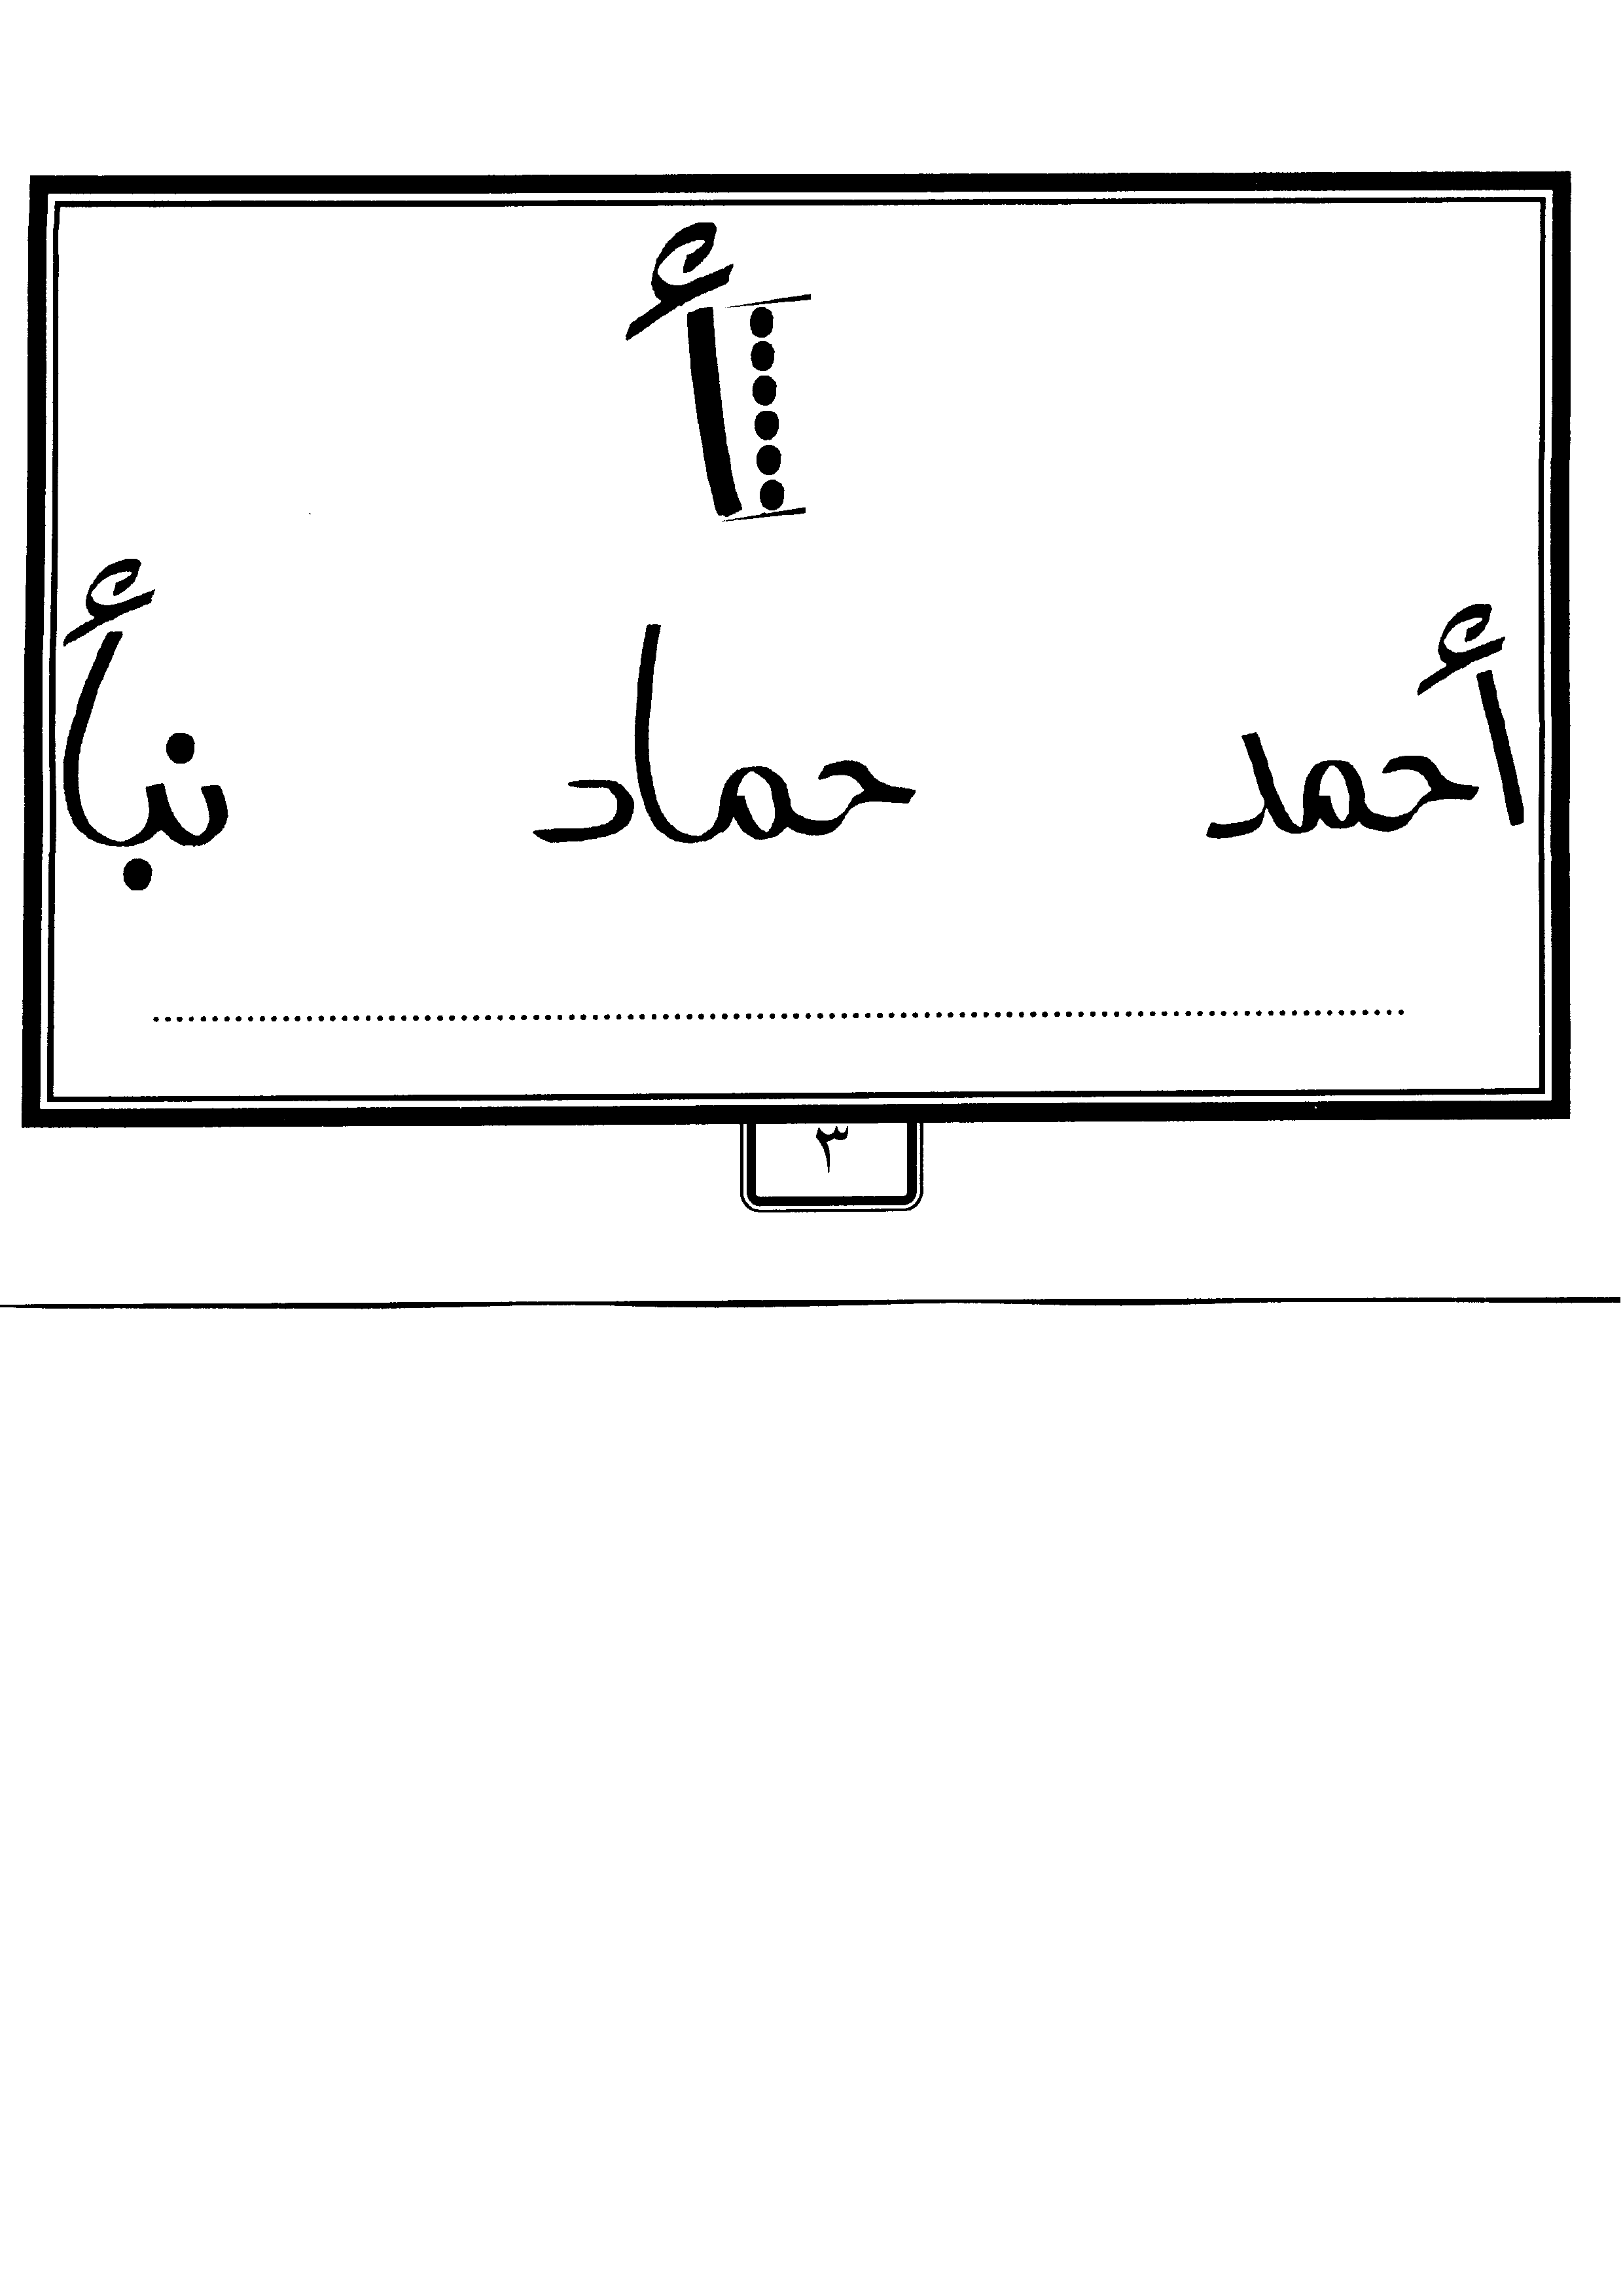 أ
أحمد حماد نبأ
٣